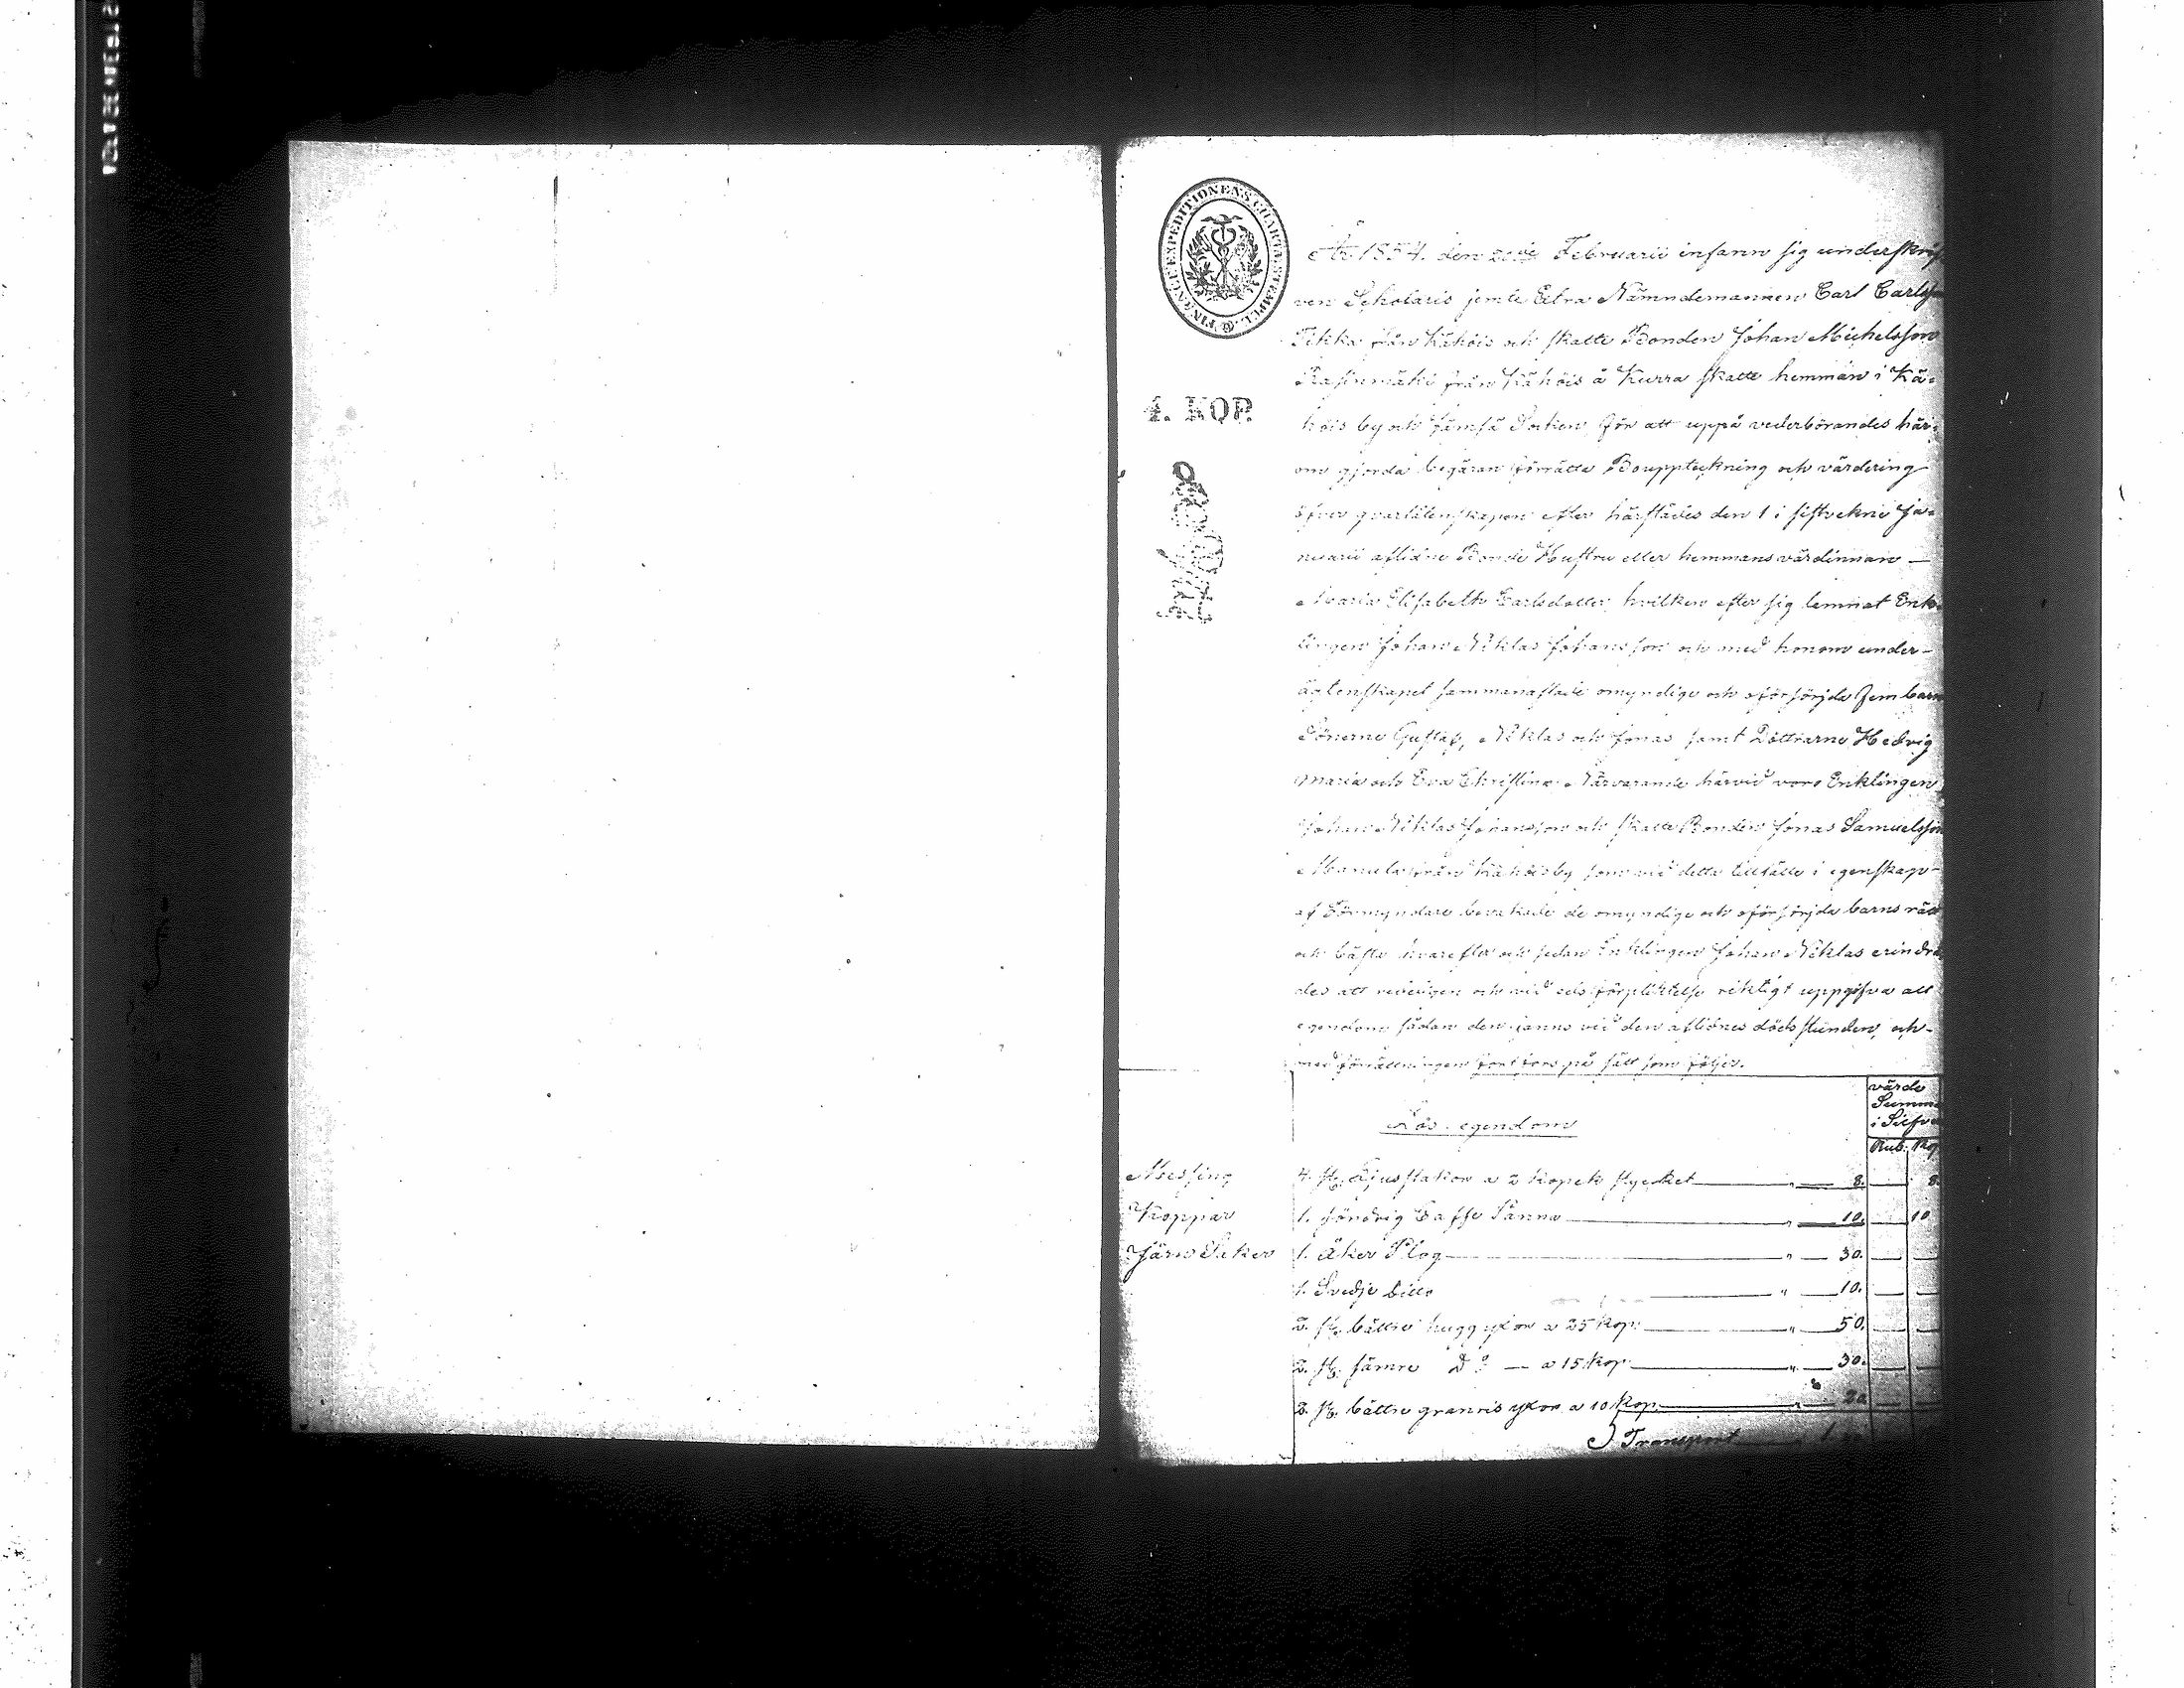 FINANCE EXPEDITIONENS CHARTÆ STEMPEL
4. KOP.
År 1854. den Februarii infann sig underskrif
ven jemte Edra Nämndemannen Carl Carlsson
Tikka från Kähöis och skatte Bonden Johan Michelsson
från Kähöis å Kurra skatte hemman i Kä-
höis by och Jämsä Socken, för att uppå vederbörandes här-
om gjorda begäran förrätta Bouppteckning och värdering
öfver qvarlåtenskapen efter härstädes den 1 i sistvekne Ja-
nuarii aflidne Bonde Hustru eller hemmansvärdinnan —
Maria Elisabeth Carlsdotter, hvilken efter sig lemnat Enk-
lingen Johan Niklas Johansson och med honom under-
ägtenskapet sammanaflade omyndige och oförsörjda fem barn
Sönerne Gustaf, Niklas och Jonas samt Döttrarne Hedvig
Maria och Eva Christina. Närvarande härvid voro Enklingen
Johan Niklas Johansson och skatte Bonden Jonas Samuelsson
från Kähöis by som vid detta tillfälle i egenskap
af Förmyndare bevakade de omyndige och oförsörjda barns rätt
och bästa hvarefter och sedan Enklingen Johan Niklas erindra
des att redeligen och vid eds förpliktelse riktigt uppgifva all
egendom sådan den fanns vid den aflidnes dödsstunden, och
med förrättningen fortfors på sätt som följer.
värde
Summa
i Silfver
Lös egendom
Rub. Kop
Messing 4. st. Ljusstakor a 2 kopek stycket " 8. 8.
Koppar 1. söndrig Caffe Panna " 10. 10
Järn Saker 1. åker Plog " 30.
1. Svedje bill " 10.
2. st. bättre huggyxor a 25 kop: " 50.
2. st. sämre D:o — a 15 kop " 30.
2. st. bättre granris yxor a 10 kop. " 20
Transport